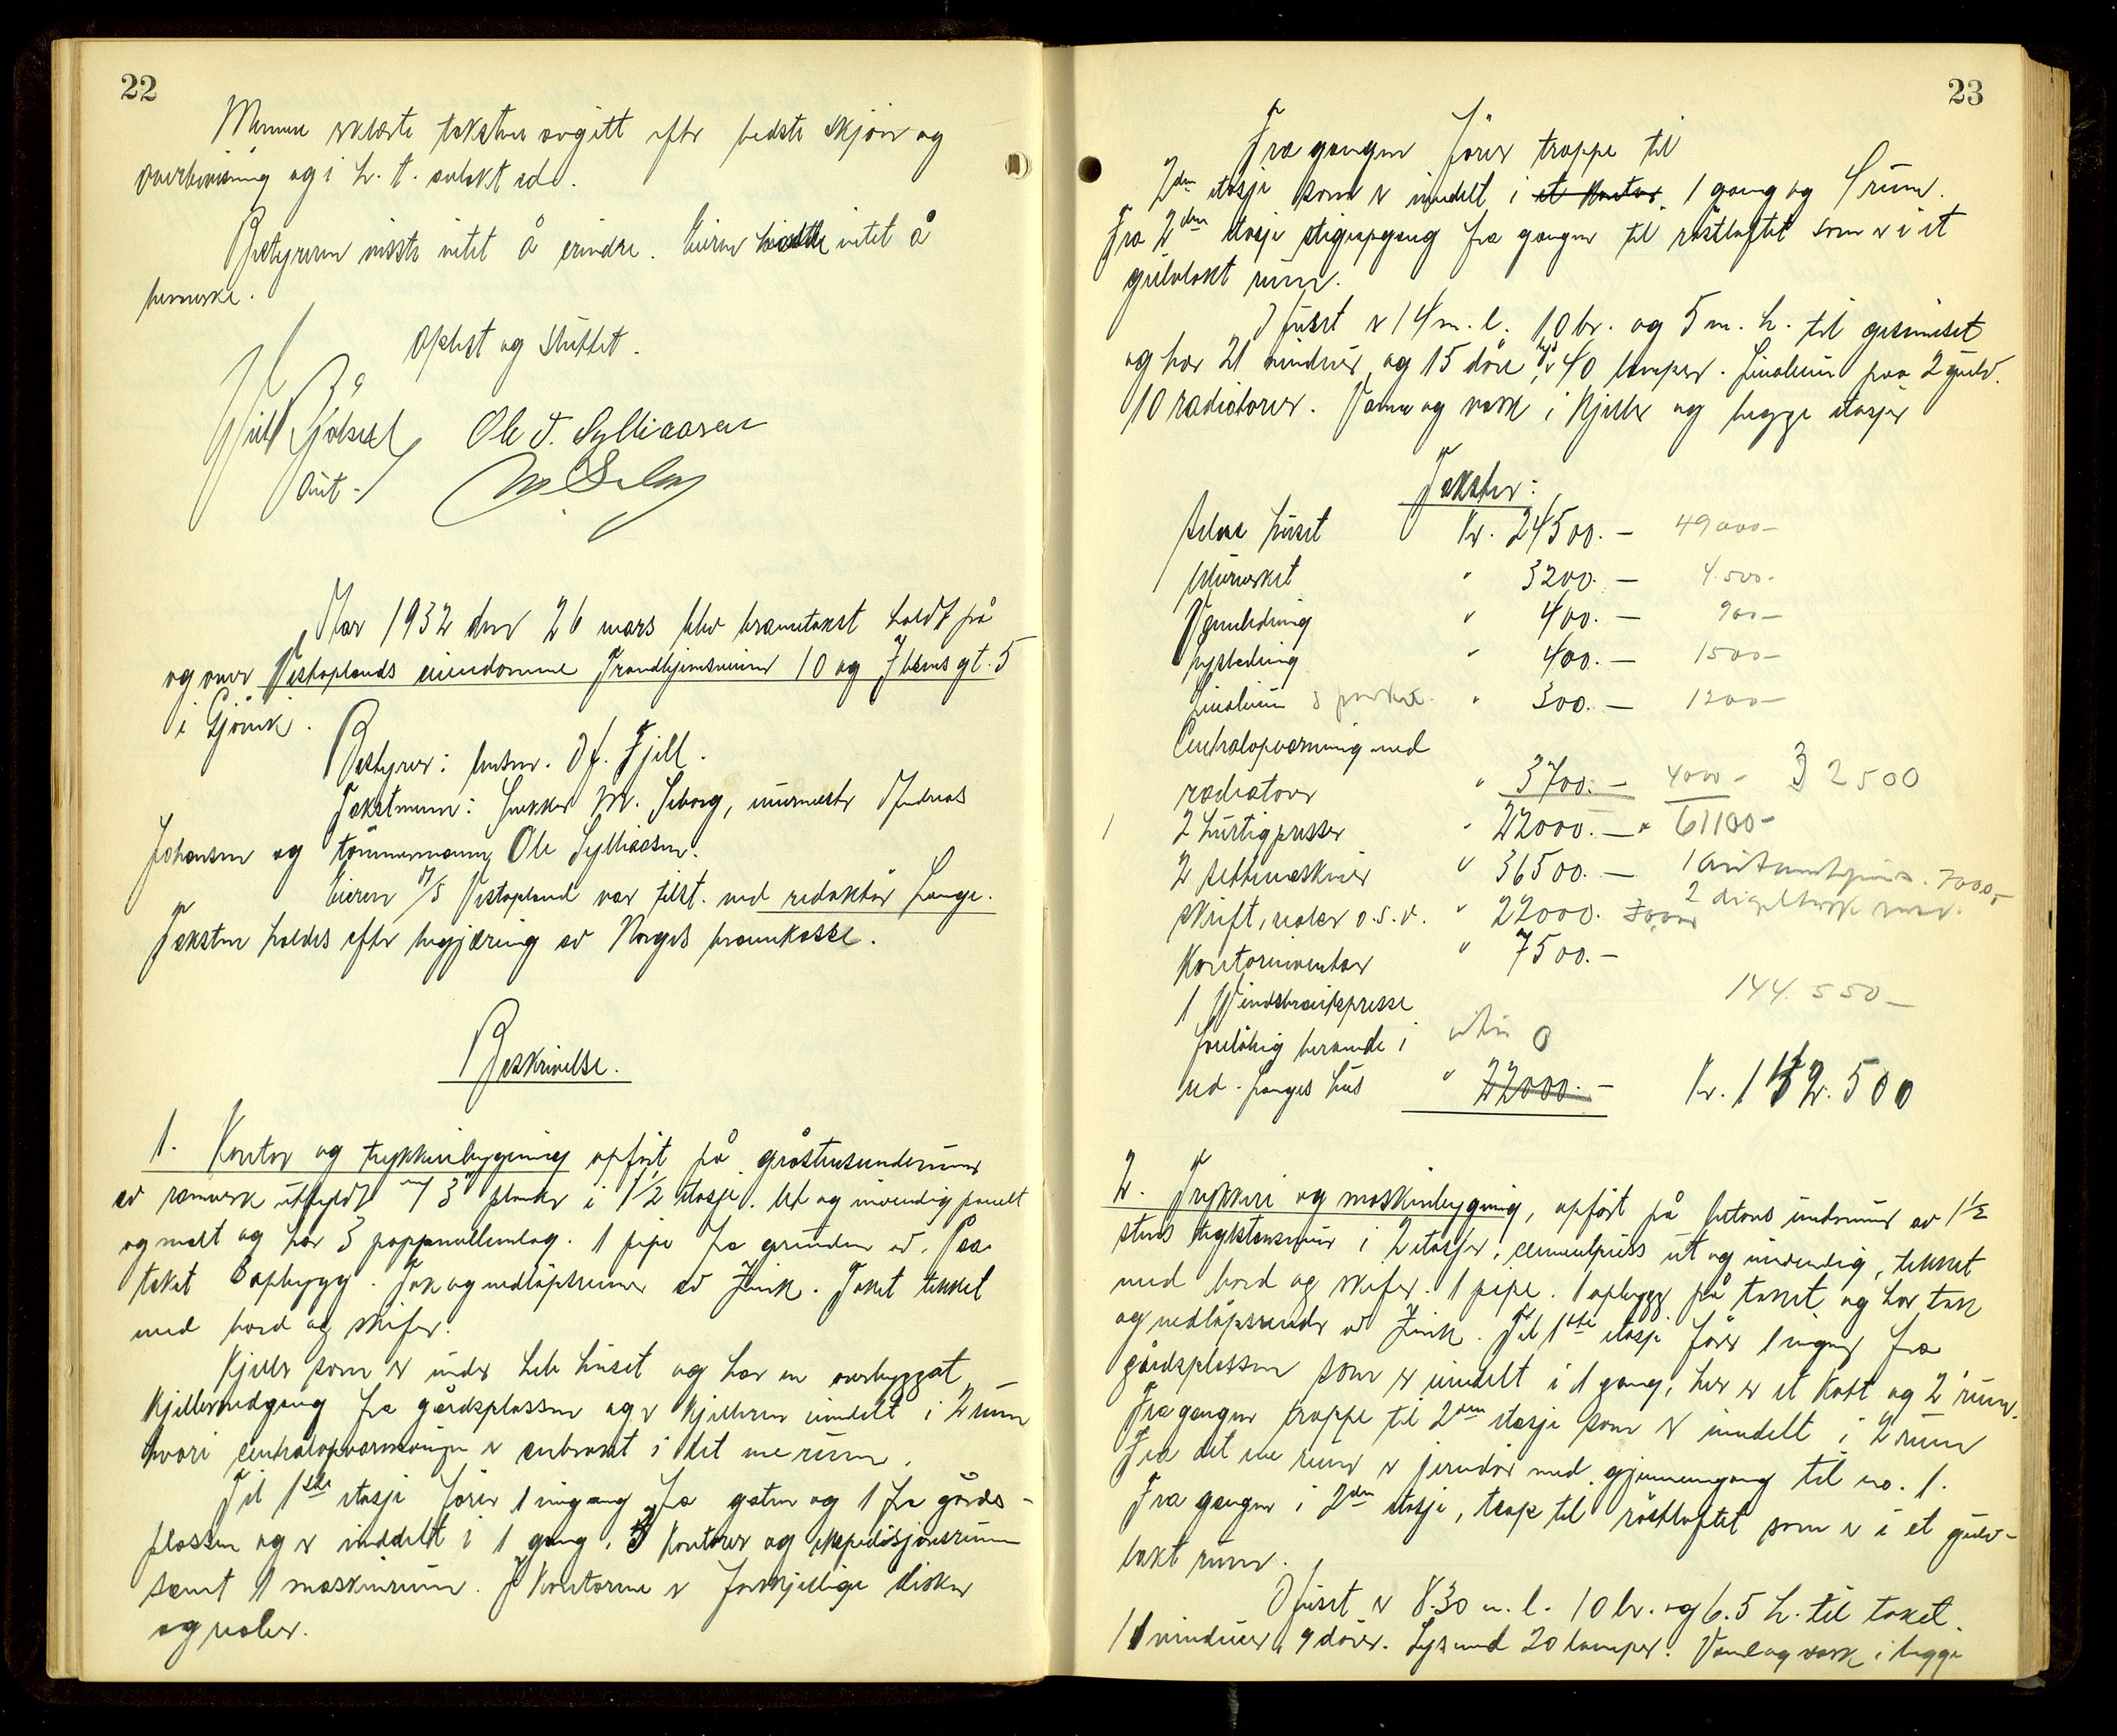 22
Mennene erklærte taksten avgitt efter bedste skjøn og
overbevisning og i h. t. avlakt ed.
Bestyreren visste intet å erindre. Eieren hadde intet å
bemerke.
Oplest og sluttet.
Ole T. Sylliaasen
Aut.
M. Seberg
Aar 1932 den 26 mars blev branntakst holdt på
og over Vestoplands eiendomme Trondhjemsveien 10 og Tverrgt. 5
i Gjøvik.
Bestyrer: lensm. O. J. Fjell.
Takstmenn: Snekker M. Seberg, murmester Andreas
Johansen og tømmermann Ole Sylliaasen.
Eieren A/S Vestopland var tilst. ved redaktør Lange.
Taksten holdes efter begjæring av Norges brannkasse.
Beskrivelse.
1. Kontor og trykkeribygning opført på gråstensundermur
av ramverk utfyldt m/ 3" planker i 1 1/2 etasje. Ut og invendig panelt
og malt og har 3 pappmellemlag. 1 pipe fra grunden av. Paa
taket 3 opbygg. Tak og nedløpsrenner av Zink. Taket tekket
med bord og skifer.
Kjeller som er under hele huset og har en overbygget
Kjellernedgang fra gårdsplassen og er kjelleren inndelt i 2 rum
hvori centralopvarmingen er anbrakt i det ene rum.
Til 1ste etasje fører 1 inngang fra gaten og 1 fra gårds-
plassen og er inddelt i 1 gang, 3 kontorer og ekspedisjonsrum
samt 1 maskinrum. I kontorene er forskjellige disker
og reoler.
23
Fra gangen fører trappe til
2den etasje som er inndelt i et kontor, 1 gang og 4 rum.
Fra 2den etasje stigeopgang fra gangen til røstloftet som er i et
gulvlakt rum.
Huset er 14 m. l. 10 br. og 5 m. h. til gesimset
og har 21 vinduer og 15 døre, lys 40 lamper. Linoleum paa 2 gulv.
10 radiatorer. Vann og vask i kjeller og begge etasjer
Takster:
Selve huset Kr. 24500.— 49000—
Murverket " 3200.— 4500.-
Vannledning " 400.— 900—
Lysledning " 400.— 1500—
Linoleum " 300.— 1200—
Centralopvarmning med
radiatorer " 3700.— 4000— 32500
2 hurtigpresser " 22000.— " 61100—
2 settemaskiner " 36500.— 7000,-
Skrift, reoler o.s.v. " 22000.
Kontorinventar " 7500.—
144.550—
1 Windsbrautpresse
foreløbig beroende i
red. Langes hus " 22000.— Kr. 142.500
2. Trykkeri og maskinbygning, opført på betons undermur av 1 1/2
stens teglstensmur i 2 etasjer, cementpuss ut og invendig, tekket
med bord og skifer. 1 pipe. 1 opbygg på taket og har tak
og nedløpsrender av Zink. Til 1ste etasje fører 1 ingang fra
gårdsplassen som er inndelt i 1 gang, her er et kott og 2 rum.
Fra gangen trappe til 2den etasje som er inndelt i 2 rum
Fra det ene rum er jerndør med gjennemgang til no. 1.
Fra gangen i 2den etasje, trap til røstloftet som er i et gulv-
lakt rum.
Huset er 8.30 m. l. 10 br. og 6.5 h. til taket.
11 vinduer, 9 dører. Lys med 20 lamper. Vann og vask i begge